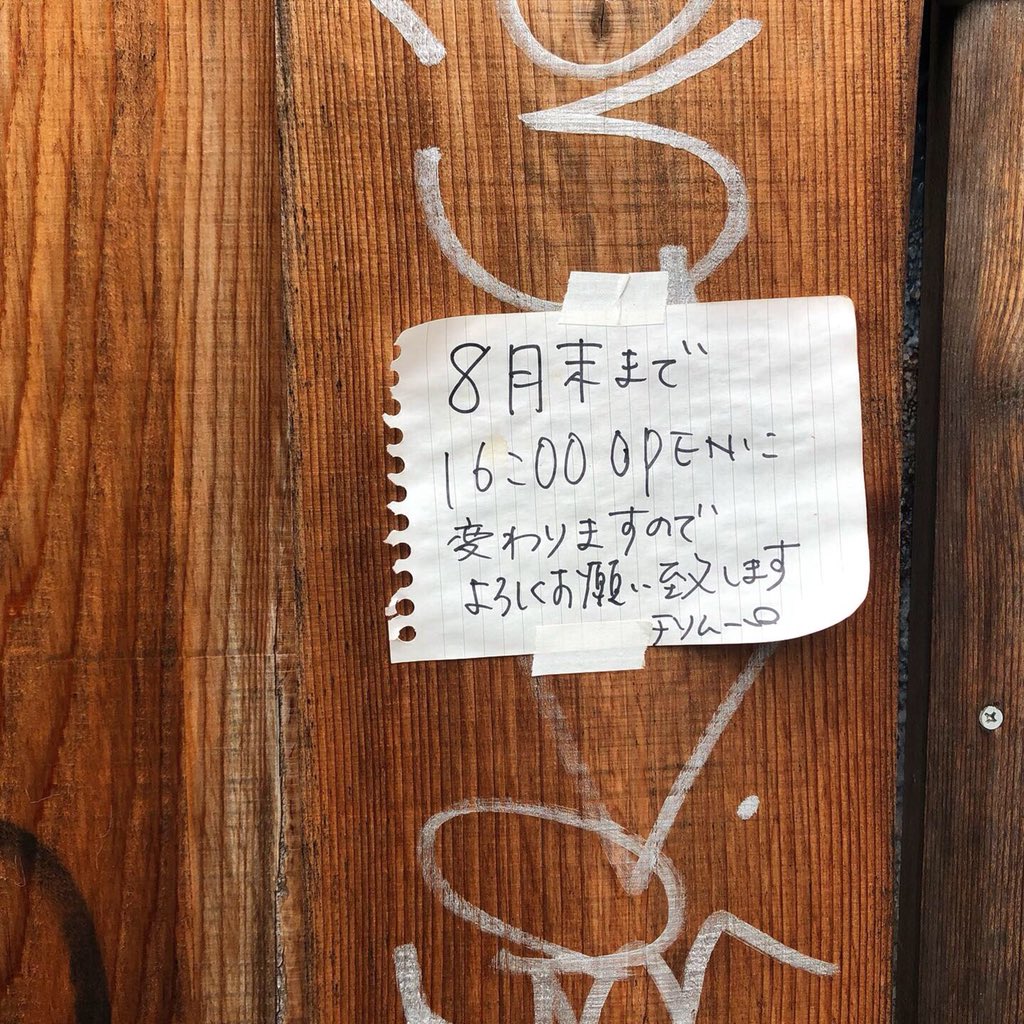 8月末まで
16:00 OPENに
変わりますので
よろしくお願い致します
チリムーロ